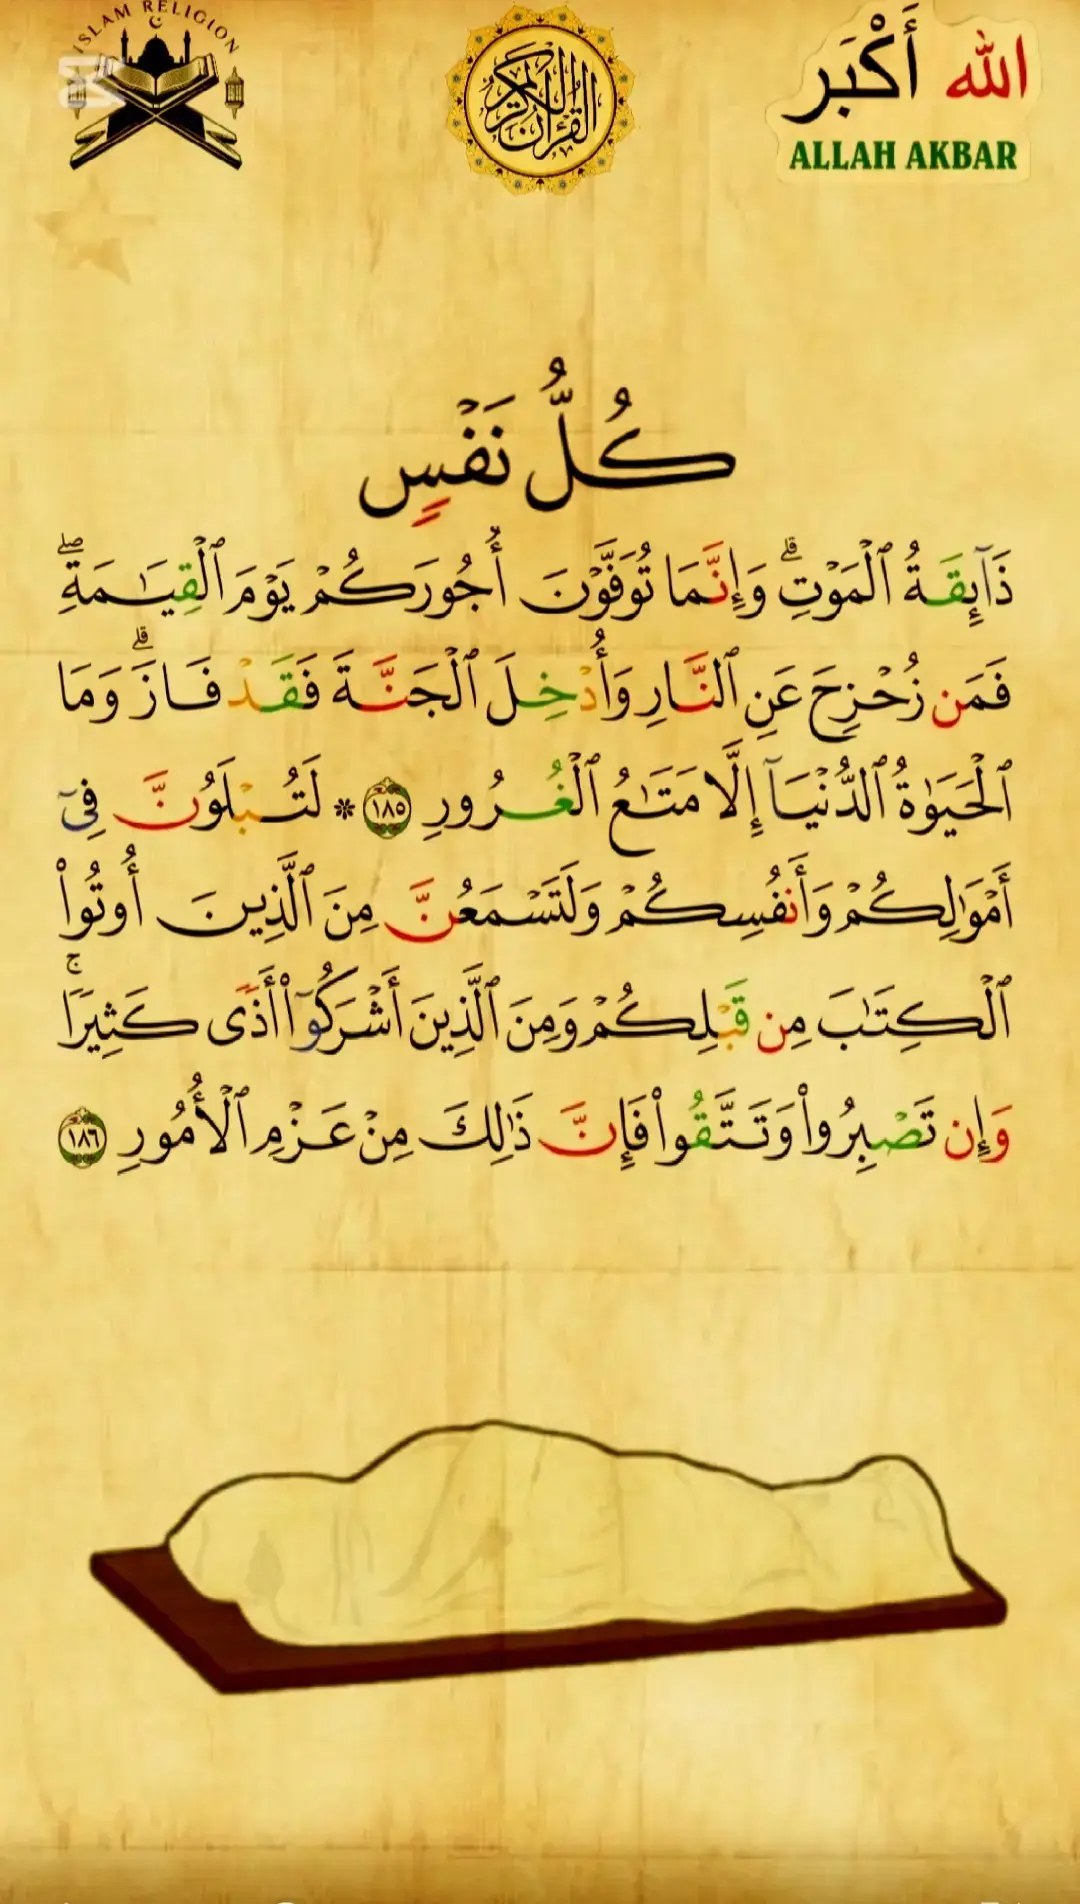 ISLAM RELIGION
القرآن الكريم
الله أَكْبَر
ALLAH AKBAR
كُلُّ نَفْسٍ
ذَآئِقَةُ ٱلْمَوْتِۗ وَإِنَّمَا تُوَفَّوْنَ أُجُورَكُمْ يَوْمَ ٱلْقِيَـٰمَةِۖ
فَمَن زُحْزِحَ عَنِ ٱلنَّارِ وَأُدْخِلَ ٱلْجَنَّةَ فَقَدْ فَازَۗ وَمَا
ٱلْحَيَوٰةُ ٱلدُّنْيَآ إِلَّا مَتَـٰعُ ٱلْغُرُورِ ١٨٥ * لَتُبْلَوُنَّ فِىٓ
أَمْوَٰلِكُمْ وَأَنفُسِكُمْ وَلَتَسْمَعُنَّ مِنَ ٱلَّذِينَ أُوتُوا۟
ٱلْكِتَـٰبَ مِن قَبْلِكُمْ وَمِنَ ٱلَّذِينَ أَشْرَكُوٓا۟ أَذًى كَثِيرًاۚ
وَإِن تَصْبِرُوا۟ وَتَتَّقُوا۟ فَإِنَّ ذَٰلِكَ مِنْ عَزْمِ ٱلْأُمُورِ ١٨٦